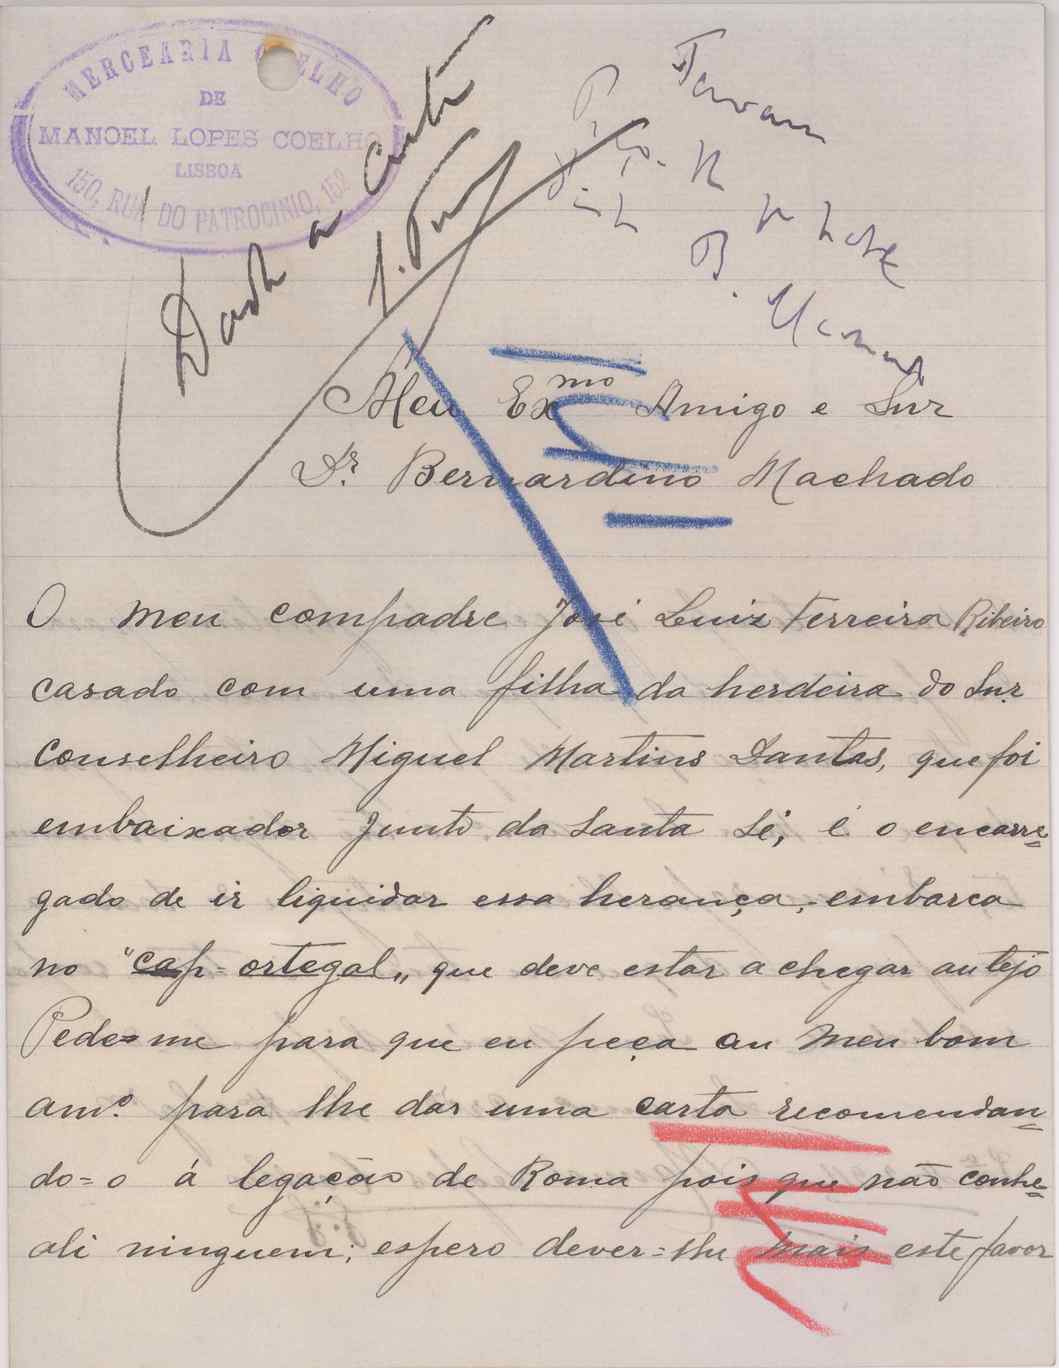 MERCEARIA COELHO
DE
MANOEL LOPES COELHO
LISBOA
150, RUA DO PATROCINIO, 152
Dada a carta
Meu Exmo Amigo e Snr
Dr. Bernardino Machado
O meu compadre José Luiz Ferreira Ribeiro
casado com uma filha da herdeira do Snr
Conselheiro Miguel Martins Dantas, que foi
embaixador junto da Santa Sé, é o encarre=
gado de ir liquidar essa herança, embarca
no "cap=ortegal" que deve estar a chegar au tejo
Pede=me para que eu peça au meu bom
amo. para lhe dar uma carta recomendan=
do=o á legação de Roma pois que não conhe=
ali ninguem; espero dever=lhe mais este favor